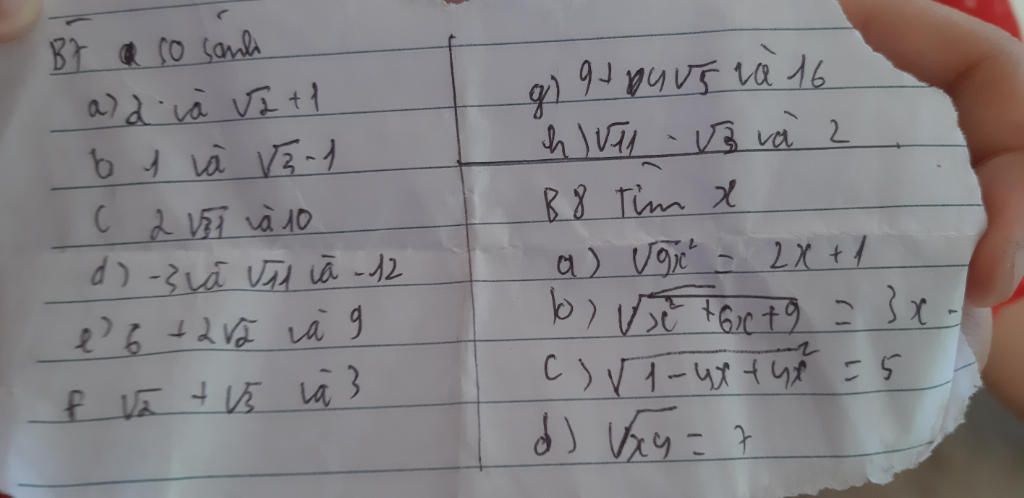 B7 so sánh
a) 2 và √2 + 1
b 1 và √3 - 1
c 2√31 và 10
d) -3 và √11 và -12
e) 6 + 2√2 và 9
f √2 + √3 và 3
g) 9 + 4√5 và 16
h) √11 - √3 và 2
B8 Tìm x
a) √9x² = 2x + 1
b) √x² + 6x + 9 = 3x -
c) √1 - 4x + 4x² = 5
d) √x4 = 7